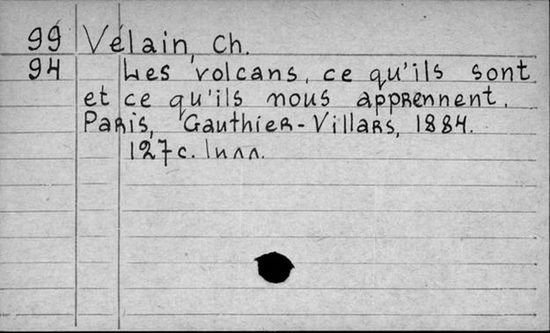 99 Vélain, Ch.
94 Les volcans, ce qu'ils sont
et ce qu'ils nous apprennent.
Paris, Gauthier-Villars, 1884.
127 c. илл.